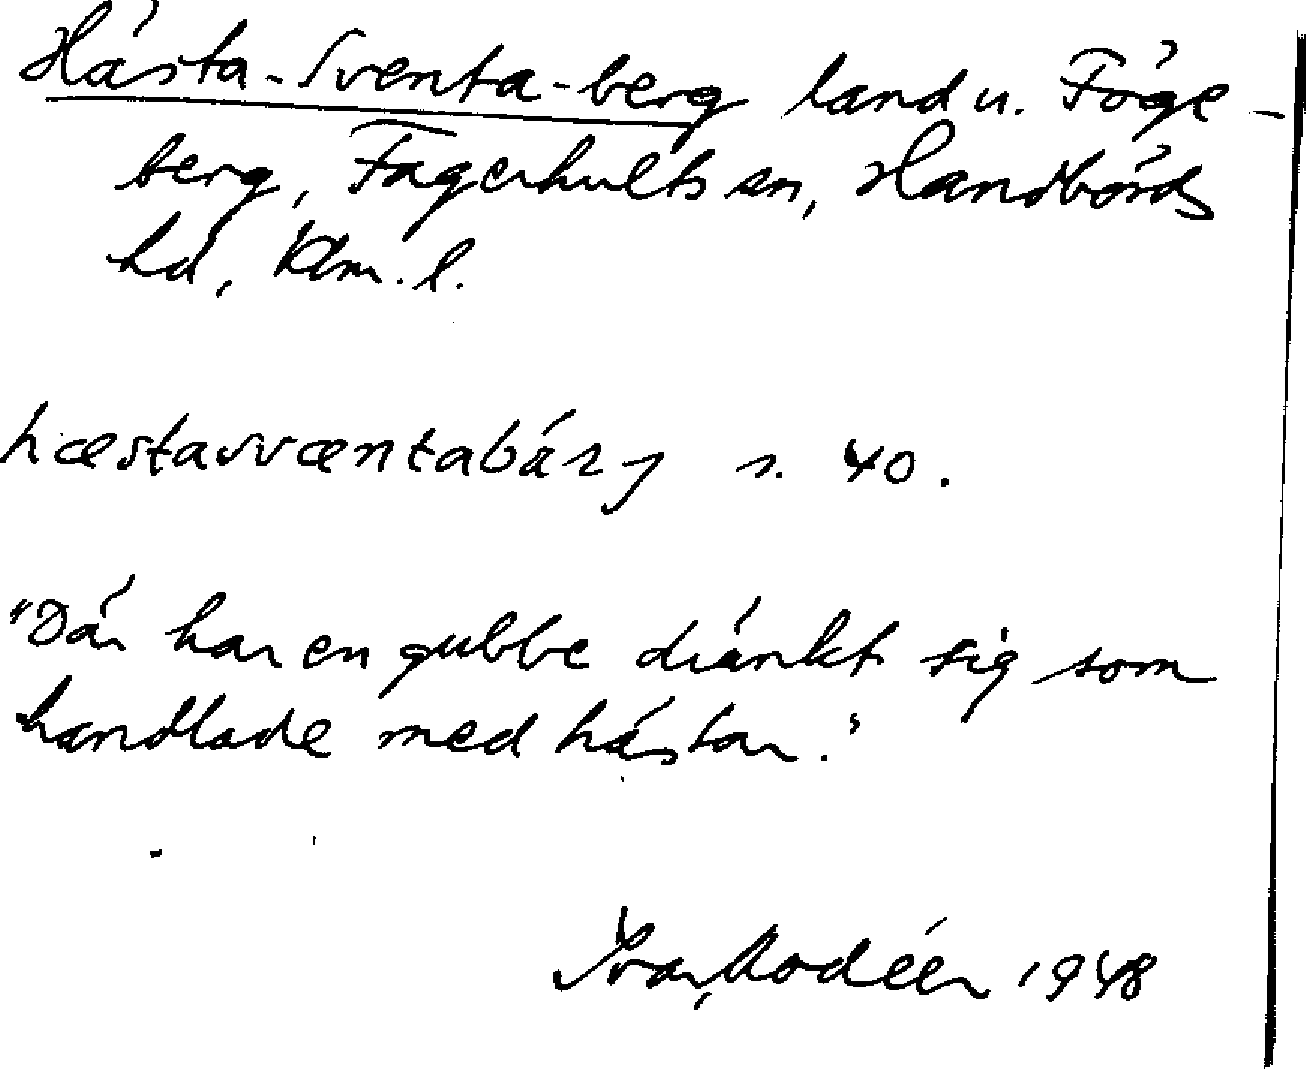 Hästa-Sventa-berg land u. Föge-
berg, Fagerhults sn, Handbörds
hd, Klm. l.
hæstasvæntabárj s. 40.
"Där har en gubbe dränkt sig som
handlade med hästar."
Ivar Modéer 1948